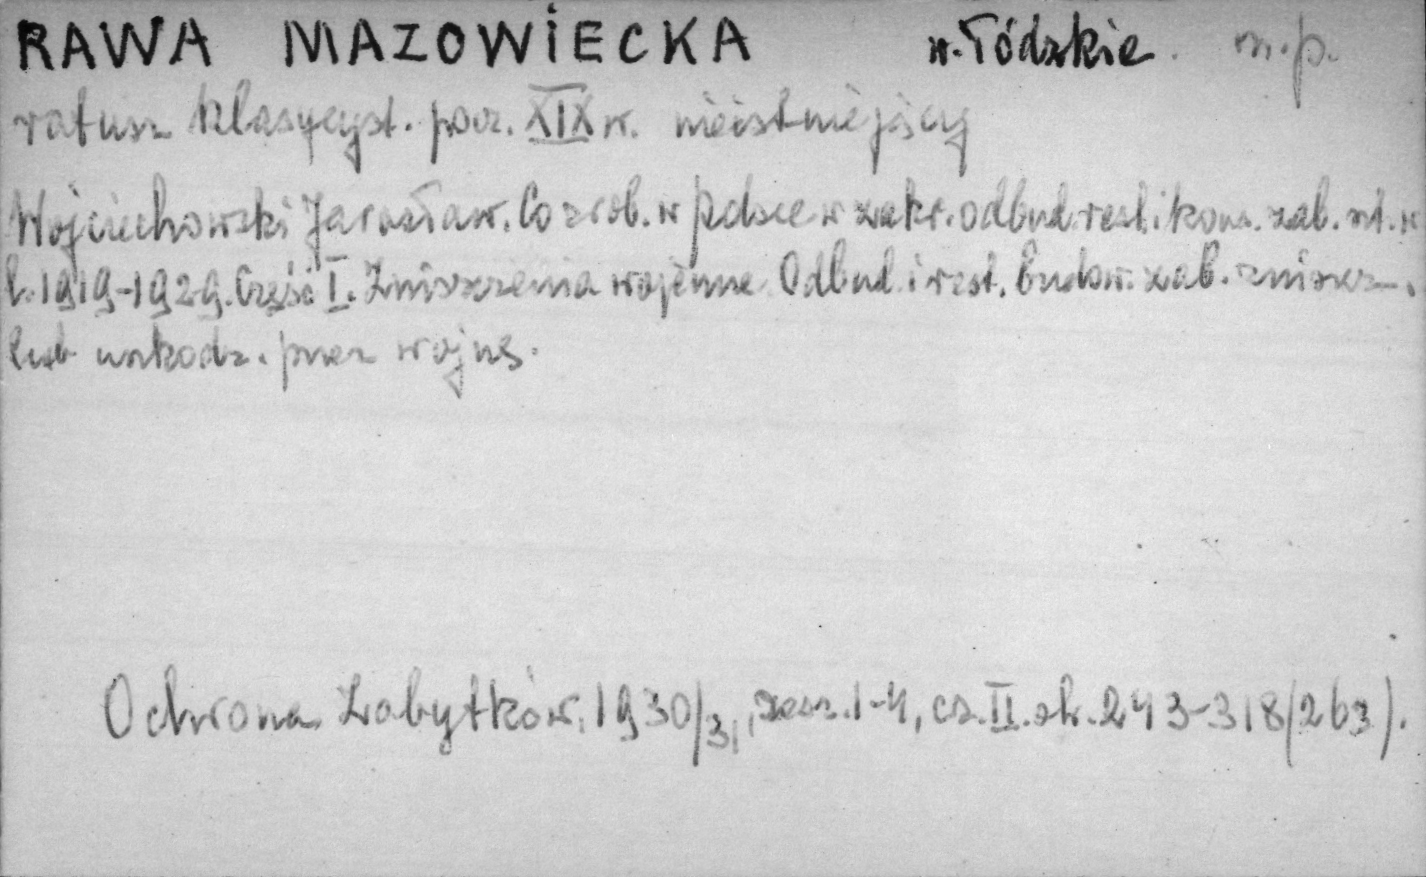 RAWA MAZOWIECKA w. Łódzkie. m.p.
ratusz klasycyst. pocz. XIX w. nieistniejący
Wojciechowski Jarosław. Co zrob. w Polsce w zakr. odbud. rest. i kons. zab. szt. w
l. 1919-1929. Część I. Zniszczenia wojenne. Odbud. i rest. budow. zab. zniszcz.
lub uszkodz. przez wojnę.
Ochrona Zabytków, 1930/31, zesz. 1-4, cz. II. str. 243-318/263).